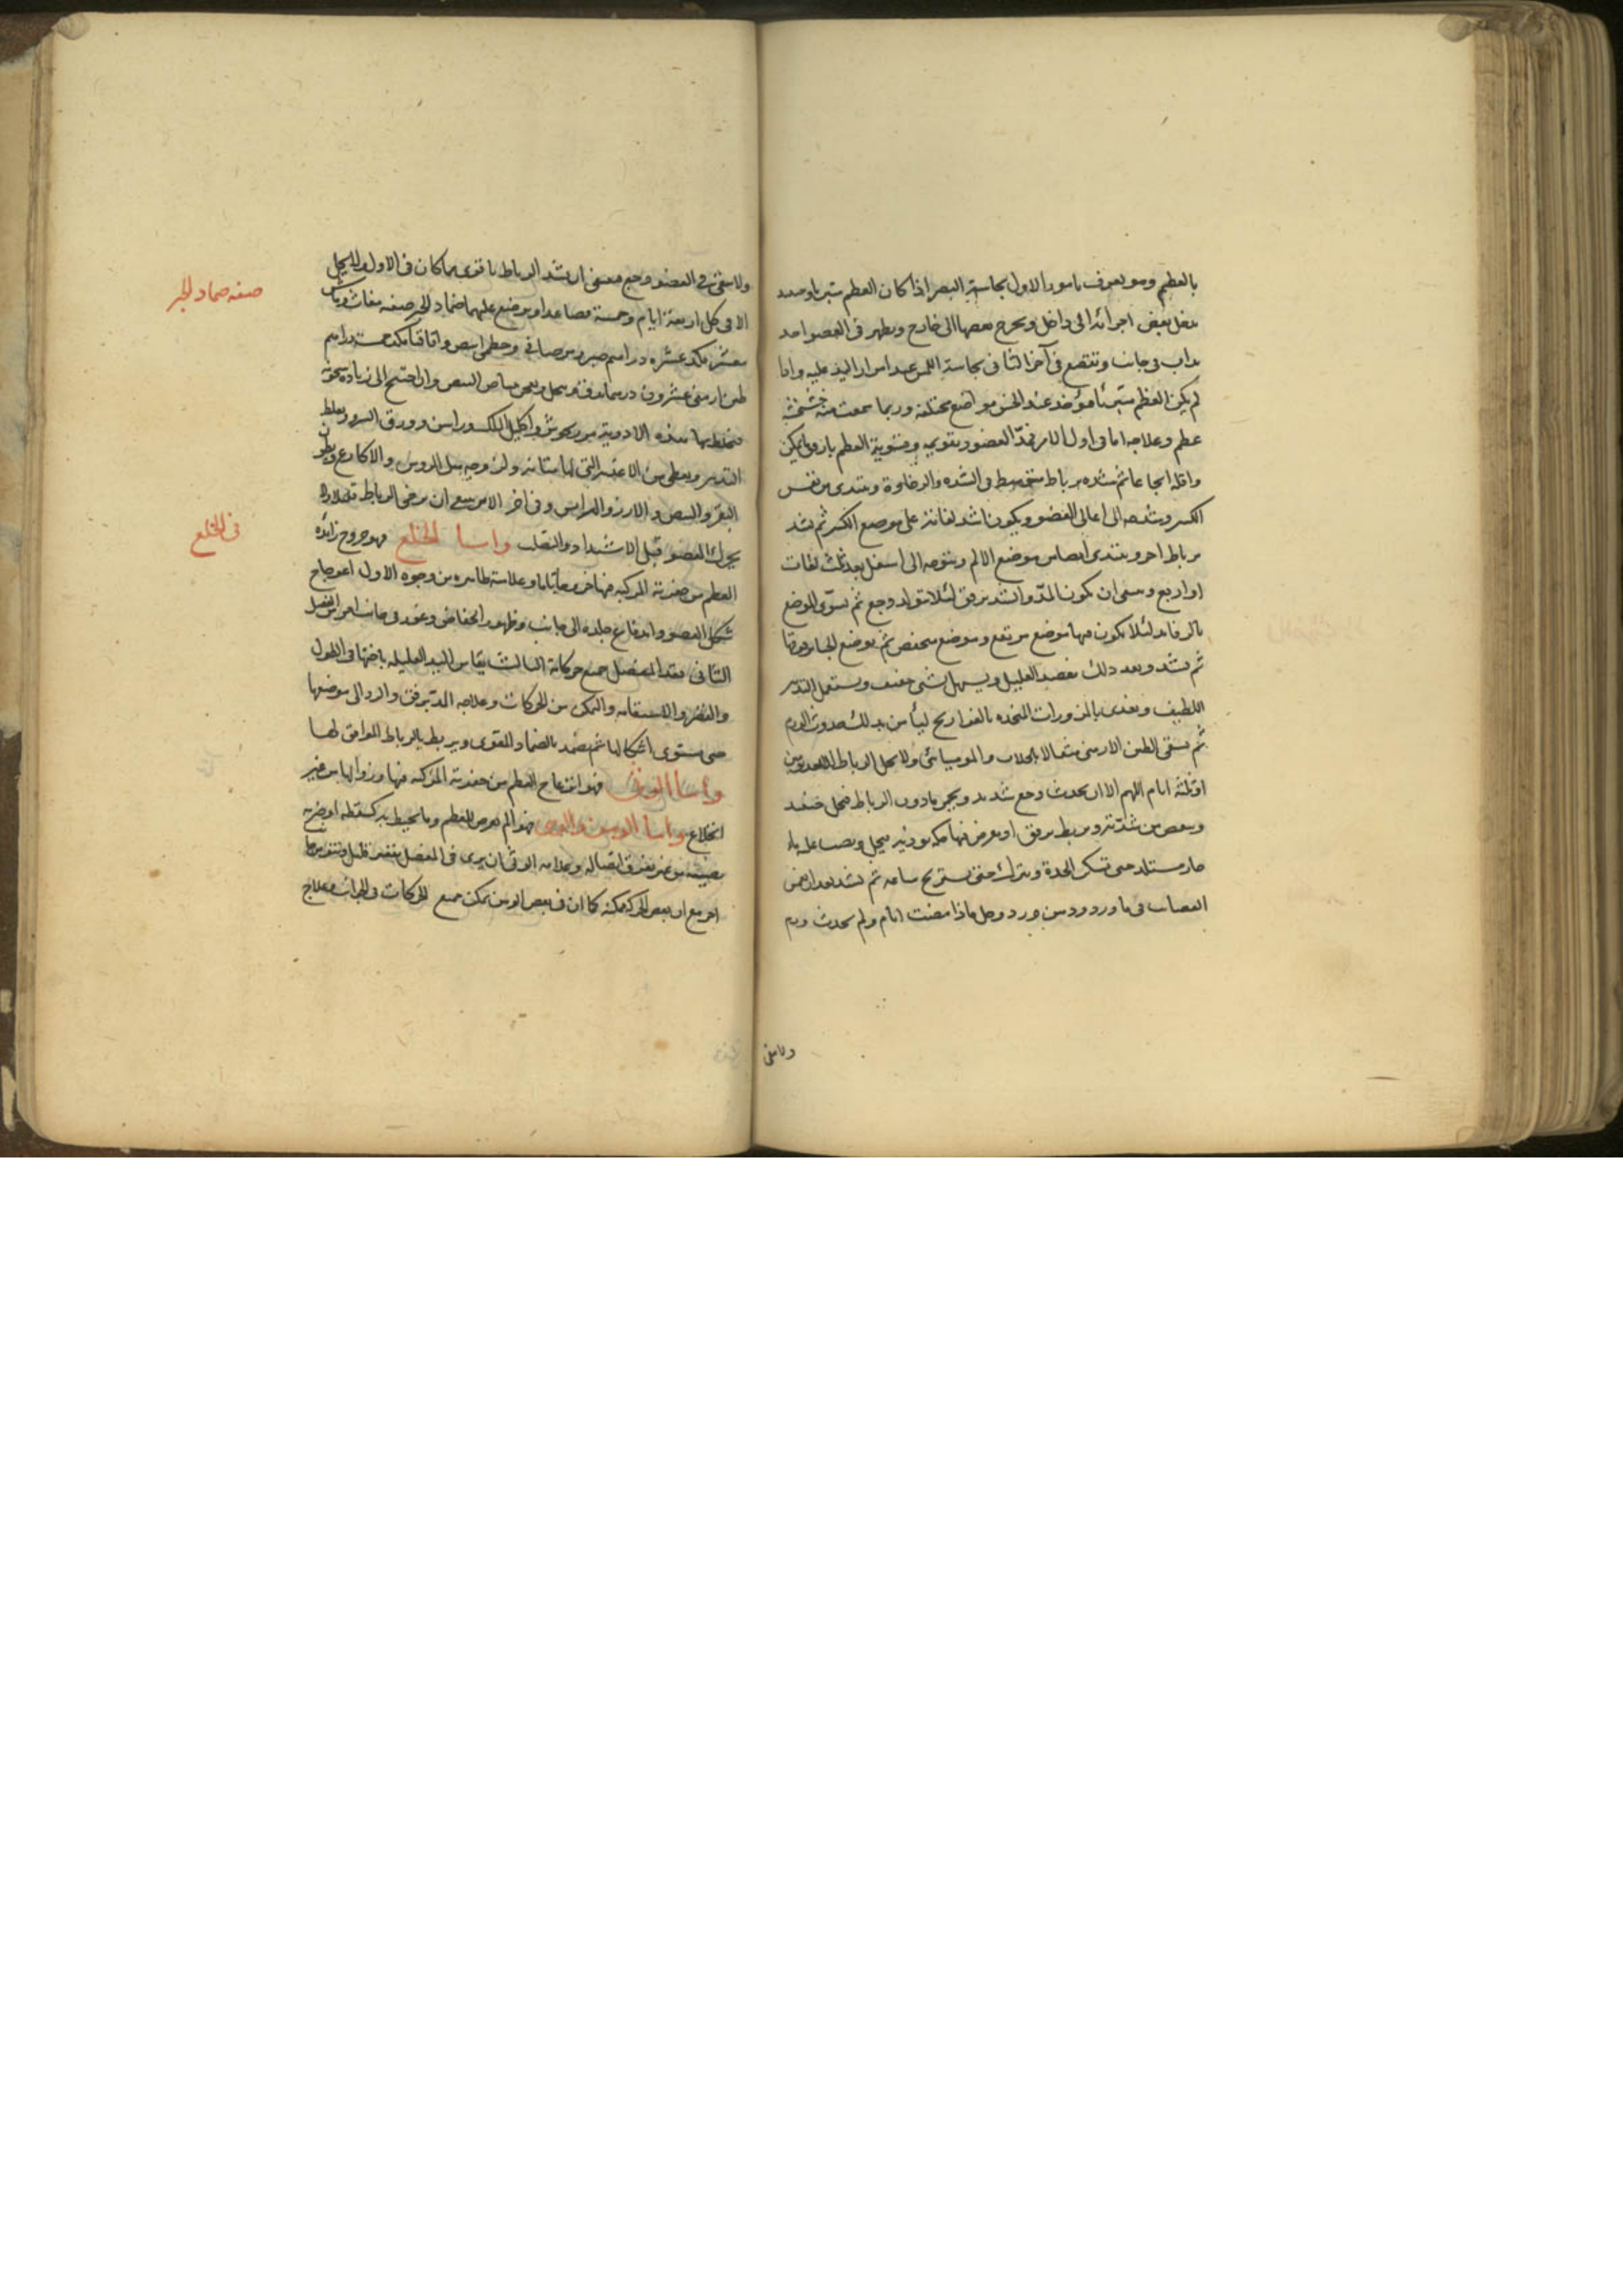 بالعظم وهو يعرف بامور الاول بحاسة البصر اذا كان العظم متبريا وحده
بعض اجزائه الى داخل ويخرج بعضها الى خارج ويظهر فى العضو احد
فى جانب وتقصع فى آخر الثانى بحاسة اللمس عند امرار اليد عليه واذا
لم يكن العظم متبريا فيوجد عند الجس مواضع مختلفة وربما سمعت منه خشخشة
عظم وعلاجه اما فى اول الامر فمد العضو وتقويمه وتسوية العظم بارفق ما يمكن
واقله ايجاعا ثم شده برباط متوسط فى الشده والرخاوة ويبتدى من نفس
الكسر وينتهى الى اعالى العضو ويكون اشد لفاته على موضع الكسر ثم يشد
برباط اخر ويبتدى ايضا من موضع الالم ويتوجه الى اسفل بعد ثلث لفات
او اربع وينبغى ان يكون المد والشد برفق لئلا يتولد وجع ثم يسوى الموضع
بالرفايد لئلا يكون فيها موضع مرتفع وموضع منخفض ثم يوضع الجباير فوقها
ثم يشد وبعد ذلك يفصد العليل ويسهل بشى خفيف ويستعمل التدبير
اللطيف ويغذى بالمزورات المتخذه بالفراريج ليأمن بذلك حدوث الورم
ثم يسقى الطين الارمنى مثقالا بالجلاب والموميائى ولا يحل الرباط الا بعد يومين
او ثلثة ايام اللهم الا ان يحدث وجع شديد ويحمر ما دون الرباط فيحل
وينقص من شدته ويربط برفق او يعرض فيها حكه يوذيه فيحل ويصب عليه ماء
حار حتى تسكن الحدة ويترك حتى يستريح ساعه ثم يشد بعد ان يغمس
العصايب فى ماورد ودهن ورد وخل فاذا مضت ايام ولم يحدث ورم
ولا يبقى
ولا يبقى فى العضو وجع فينبغى ان يشد الرباط باقوى مما كان فى الاول ولا يحل
الا فى كل اربعة ايام وخمسة فصاعدا ويوضع عليها ضماد الجبر صفته مغاث وماش
مقشر مكد عشره دراهم صبر ومر صافى وخطمى ابيض واقاقيا مكد خمسة دراهم
طين ارمنى عشرون درهما يدق وينخل ويعجن ببياض البيض وان احتيج الى زياده سخونة
فيخلط بها هذه الادوية مرزنجوش واكليل الملك وراسن وورق السرو ويغلظ
التدبير ويعطى من الاغذية التى لها متانه ولزوجه مثل الروس والاكارع وبطون
البقر والبيض والارز والهرايس وفى اخر الامر ينبغى ان يرخى الرباط قليلا ولا
يحرك العضو قبل الاشتداد والتصلب واما الخلع فهو خروج زائده
العظم من حفرته المركبه فيها خروجا تاما وعلامته ظاهره من وجوه الاول اعوجاج
شكل العضو واندفاع جلده الى جانب وظهور انخفاض وغور فى جانب اخر من المفصل
الثانى فقد المفصل جميع حركاته الثالث يقاس اليد العليله باختها فى الطول
والقصر والاستقامه والتمكن من الحركات وعلاجه المد برفق والرد الى موضعها
حتى يستوى اشكالها ثم يضمد بالضماد المقوى ويربط بالرباط الموافق لها
واما الوثى فهو انزعاج العظم من حفرته المركبه فيها وزوالها من غير
انخلاع واما الوهن والوثى فهو الم يعرض للعظم وما يحيط به كسقطه او ضربه
تصيبه من غير تفرق اتصاله وعلامه الوثى ان يرى فى المفصل تقعير قليل ونتو من جانب
اخر مع ان بعض الحركه ممكنه كما ان فى بعض الوهن يمكن جميع الحركات فى الجوانب وعلاج
صفه ضماد الجبر
فى الخلع